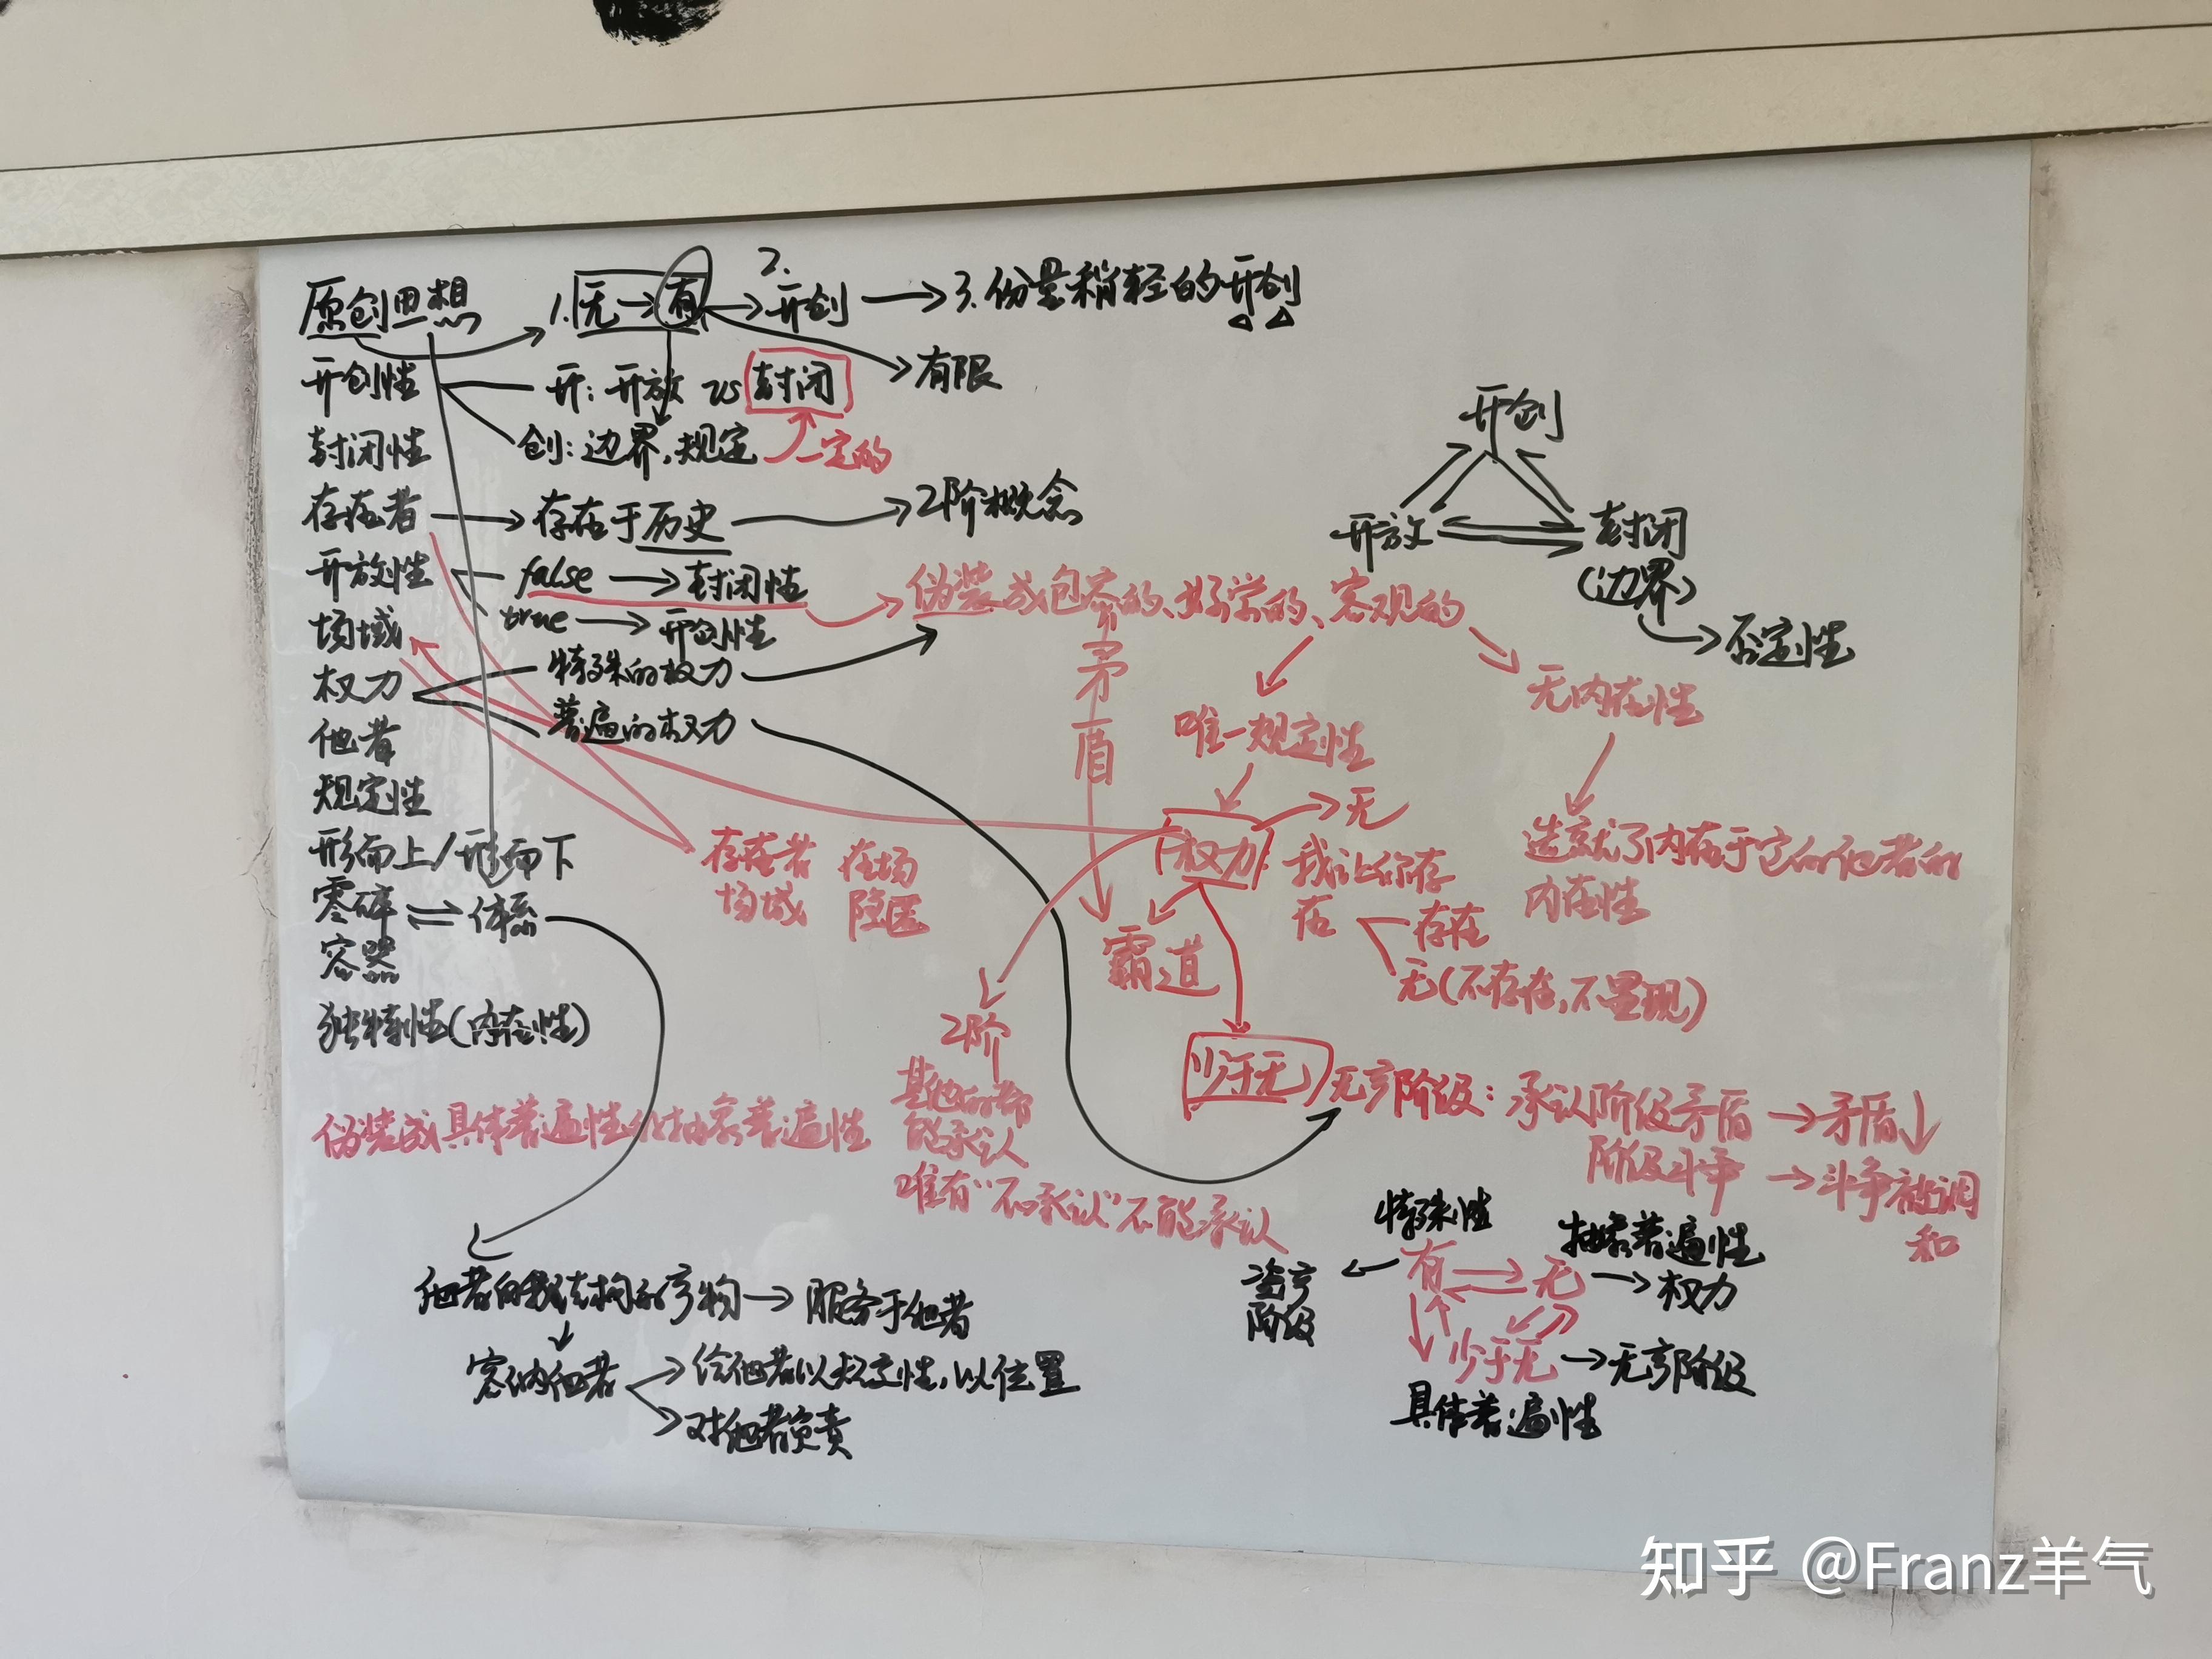 原创思想
1. 无→有→
2. 开创
→3. 份量稍轻的开创
有限
开创性
开：开放 vs 封闭
创：边界，规定
一定的
封闭性
存在者→存在于历史→2阶概念
开放性
false→封闭性
true→开创性
伪装成包容的、好学的、客观的
场域
权力
特殊的权力
普遍的权力
他者
规定性
形而上/形而下
零碎⇌体系
容器
独特性(内在性)
开创
开放
封闭
(边界)
→否定性
矛盾
霸道
唯一规定性
权力
→无
我让你存在
存在
无(不存在,不显现)
无内在性
造就了内在于它的他者的
内在性
存在者 在场
场域 隐匿
2阶
其他的都
能承认
唯有"不承认"不能承认
"少于无"
无产阶级：承认阶级矛盾→矛盾↓
阶级斗争→斗争被调和
伪装成具体普遍性的抽象普遍性
特殊性
抽象普遍性
资产阶级
←有⇌无→权力
少于无→无产阶级
具体普遍性
他者的结构的产物→服务于他者
容纳他者
→给他者以规定性,以位置
→对他者负责
知乎 @Franz羊气